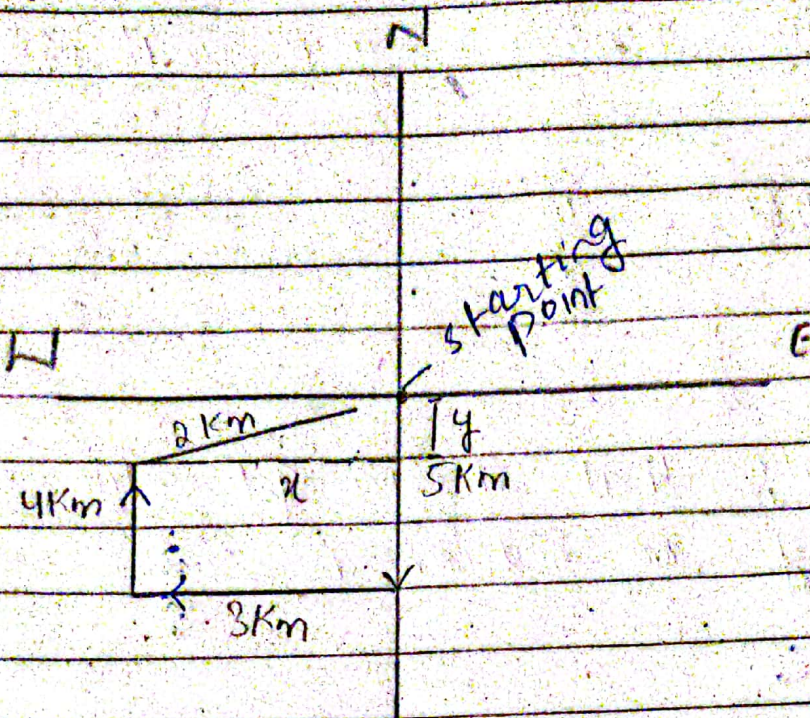 N
starting
point
W
E
2 Km
y
x
5 Km
4 Km
3 Km